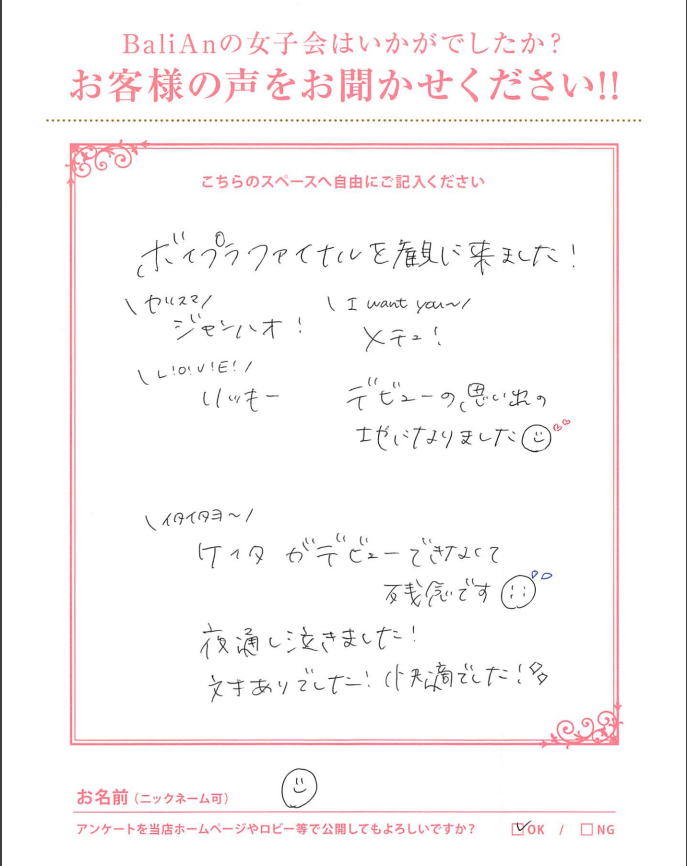 BaliAnの女子会はいかがでしたか？
お客様の声をお聞かせください!!
こちらのスペースへ自由にご記入ください
ボイプラファイナルを観に来ました！
\ /
ジャンハオ！
\ I want you〜/
メテュ！
\ L!O!V!E! /
リッキー
デビューの思い出の
地になりました
\ イタイタヨ〜/
ケイタがデビューできなくて
残念です
夜通し泣きました！
でした！快適でした！
お名前（ニックネーム可）
アンケートを当店ホームページやロビー等で公開してもよろしいですか？ ☑OK / □NG